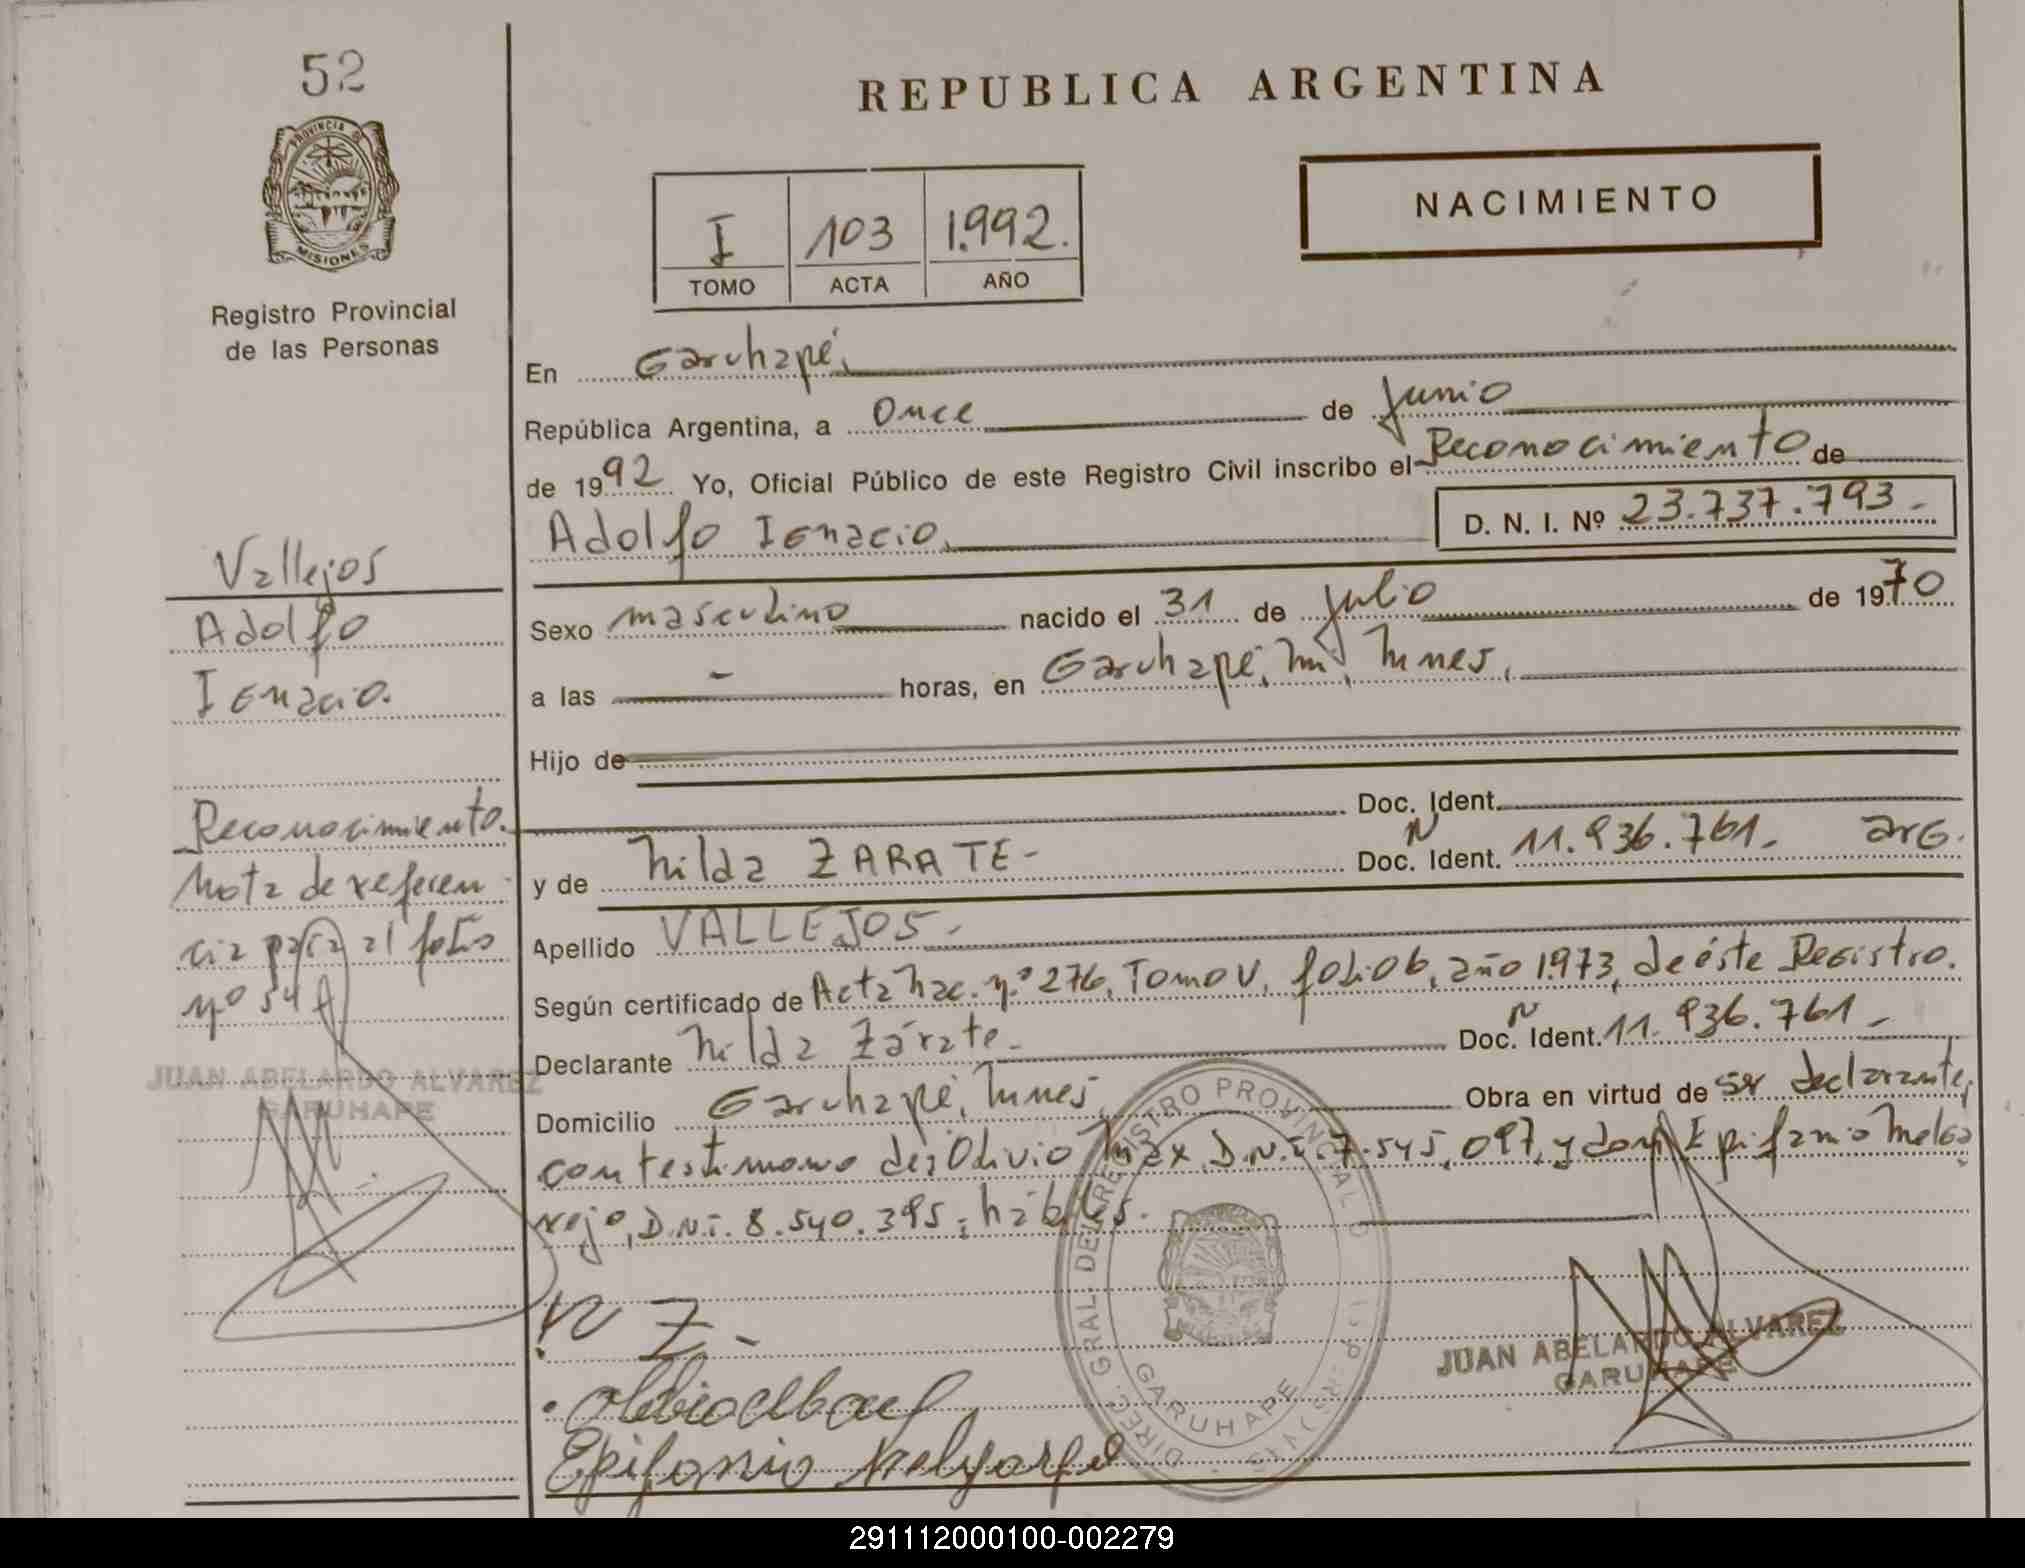 52
REPUBLICA ARGENTINA
PROVINCIA D
MISIONES
Registro Provincial
de las Personas
NACIMIENTO
I 103 1.992.
TOMO ACTA AÑO
En Garuhapé,
República Argentina, a Once de Junio
de 1992 Yo, Oficial Público de este Registro Civil inscribo el Reconocimiento de
Adolfo Ignacio, D. N. I. Nº 23.737.793.-
Sexo masculino nacido el 31 de Julio de 1970
a las - horas, en Garuhapé, Mnes,
Hijo de
Doc. Ident.
y de Nilda ZARATE- Doc. N Ident. 11.936.761.- arg.
Apellido VALLEJOS.-
Según certificado de Acta Nac. nº 276, Tomo V, folio 6, año 1.973, de éste Registro.
Declarante Nilda Zárate.- Doc. N Ident. 11.936.761.-
Domicilio Garuhapé, Mnes, Obra en virtud de ser declarante,
con testimonio de: Olivio D.N.I. 7.545.097, y don Epifanio Melga
rejo, D.N.I. 8.540.395, hábiles.
N Z-
Epifanio Melgarejo
JUAN ABELARDO ALVAREZ
GARUHAPE
DIREC. GRAL. DEL REGISTRO PROVINCIAL D
GARUHAPE
Vallejos
Adolfo
Ignacio.
Reconocimiento.
Nota de referen-
cia para al folio
nº 54
JUAN ABELARDO ALVAREZ
GARUHAPE
291112000100-002279